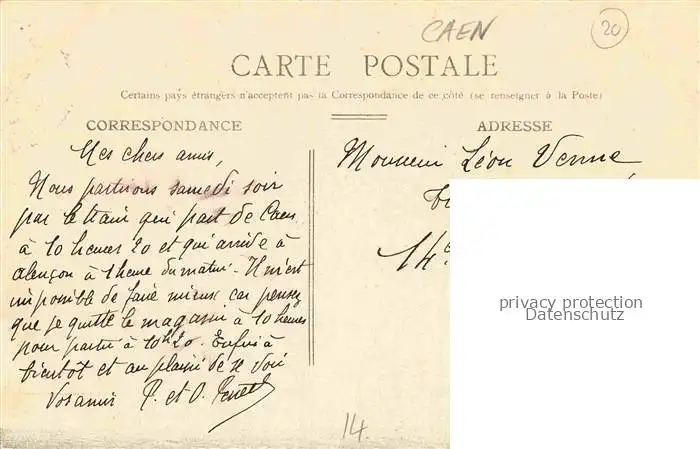 CAEN
20
CARTE POSTALE
Certains pays étrangers n'acceptent pas la Correspondance de ce côté (se renseigner à la Poste)
CORRESPONDANCE
Mes chers amis,
Nous partirons samedi soir
par le train qui part de Caen
à 10 heures 20 et qui arrive à
alençon à 1 heure du matin. Il m'est
impossible de faire mieux car pensez
que je quitte le magasin à 10 heures
pour partir à 10h20. Enfin à
bientôt et au plaisir de se voir
Vos amis P. et O.
ADRESSE
Monsieur Léon
14
14.
privacy protection
Datenschutz